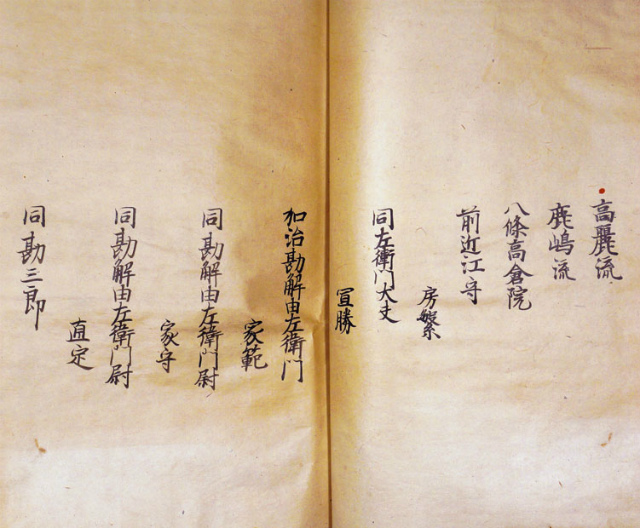 高麗流
鹿嶋流
八條高倉院
前近江守
房繁
同左衛門大丈
宣勝
加治勘解由左衛門
家範
同勘解由左衛門尉
家守
同勘解由左衛門尉
直定
同勘三郎